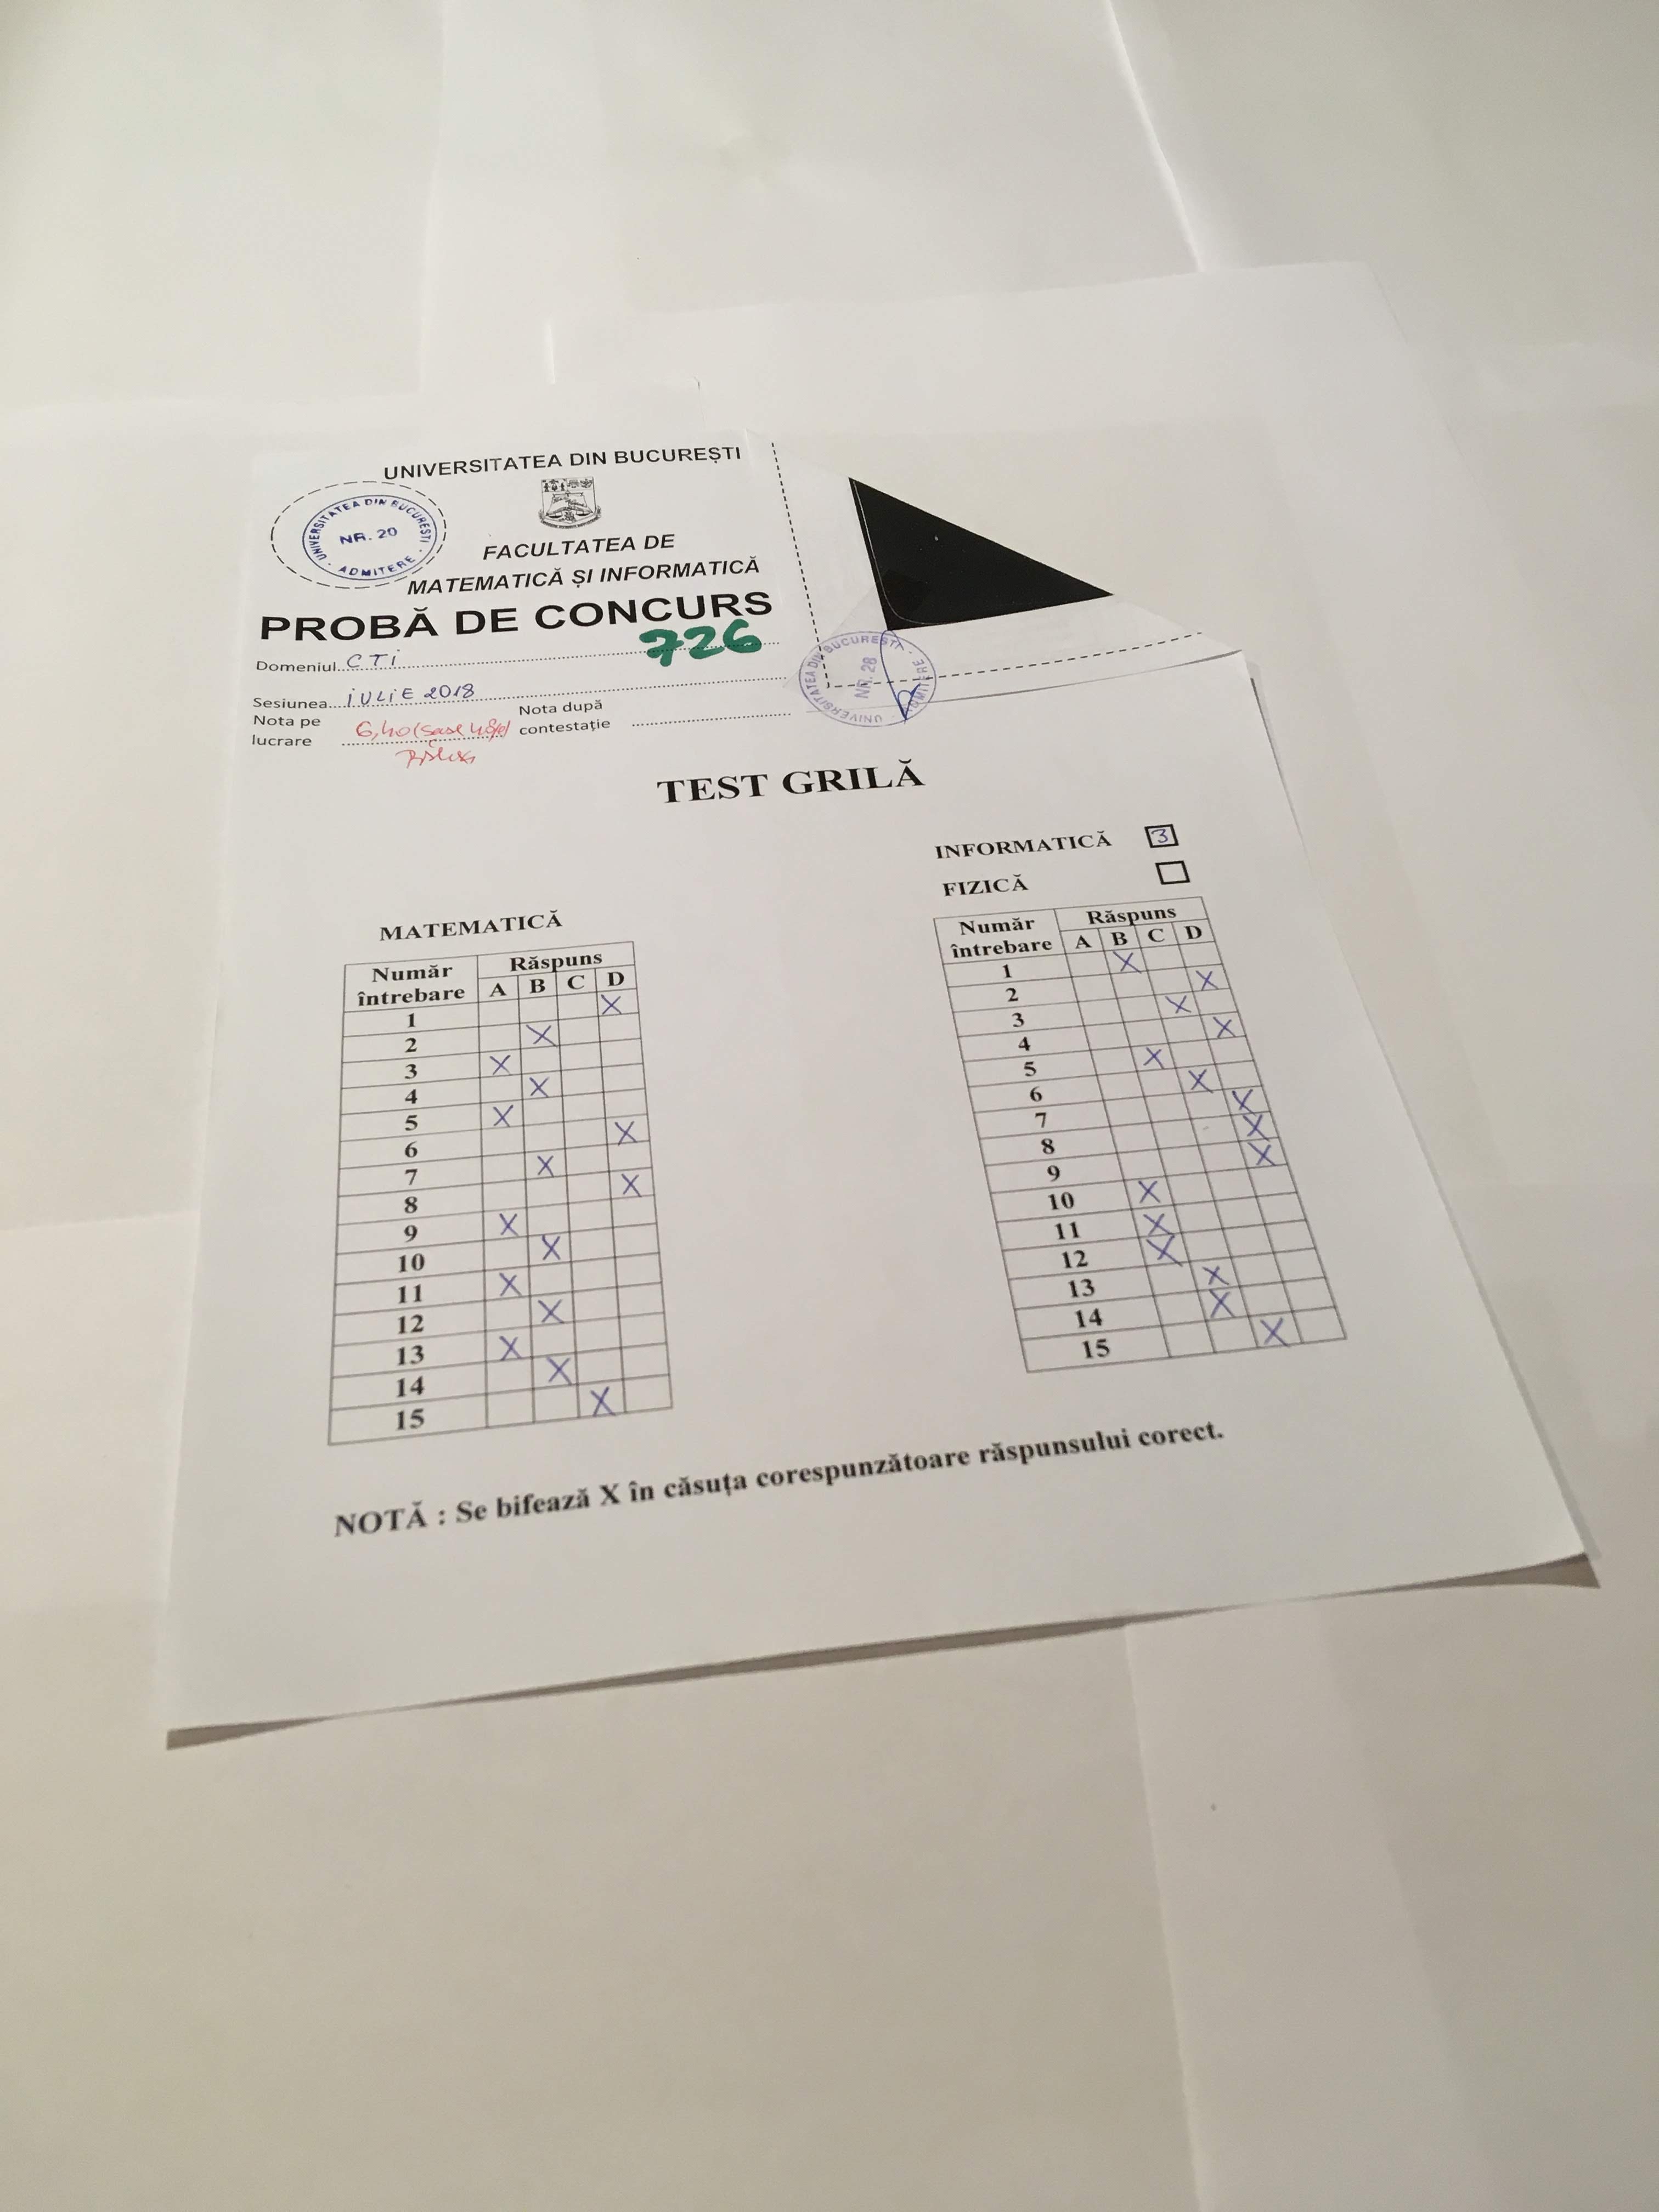 UNIVERSITATEA DIN BUCUREȘTI
UNIVERSITATEA DIN BUCUREȘTI
NR. 20
ADMITERE
FACULTATEA DE
MATEMATICĂ ȘI INFORMATICĂ
PROBĂ DE CONCURS
726
Domeniul CTI
Sesiunea IULIE 2018
Nota pe lucrare 6,40 (șase 40%)
Nota după contestație
UNIVERSITATEA DIN BUCUREȘTI
NR. 28
ADMITERE
TEST GRILĂ
INFORMATICĂ 3
FIZICĂ
MATEMATICĂ
Număr întrebare Răspuns
A B C D
1 X
2 X
3 X
4 X
5 X
6 X
7 X
8 X
9 X
10 X
11 X
12 X
13 X
14 X
15 X
Număr întrebare Răspuns
A B C D
1 X
2 X
3 X
4 X
5 X
6 X
7 X
8 X
9 X
10 X
11 X
12 X
13 X
14 X
15 X
NOTĂ : Se bifează X în căsuța corespunzătoare răspunsului corect.